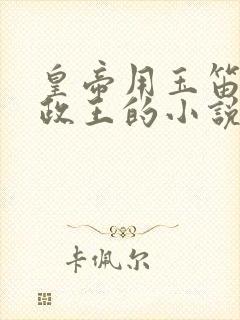 皇帝用玉笛
政王的小說
卡佩尔